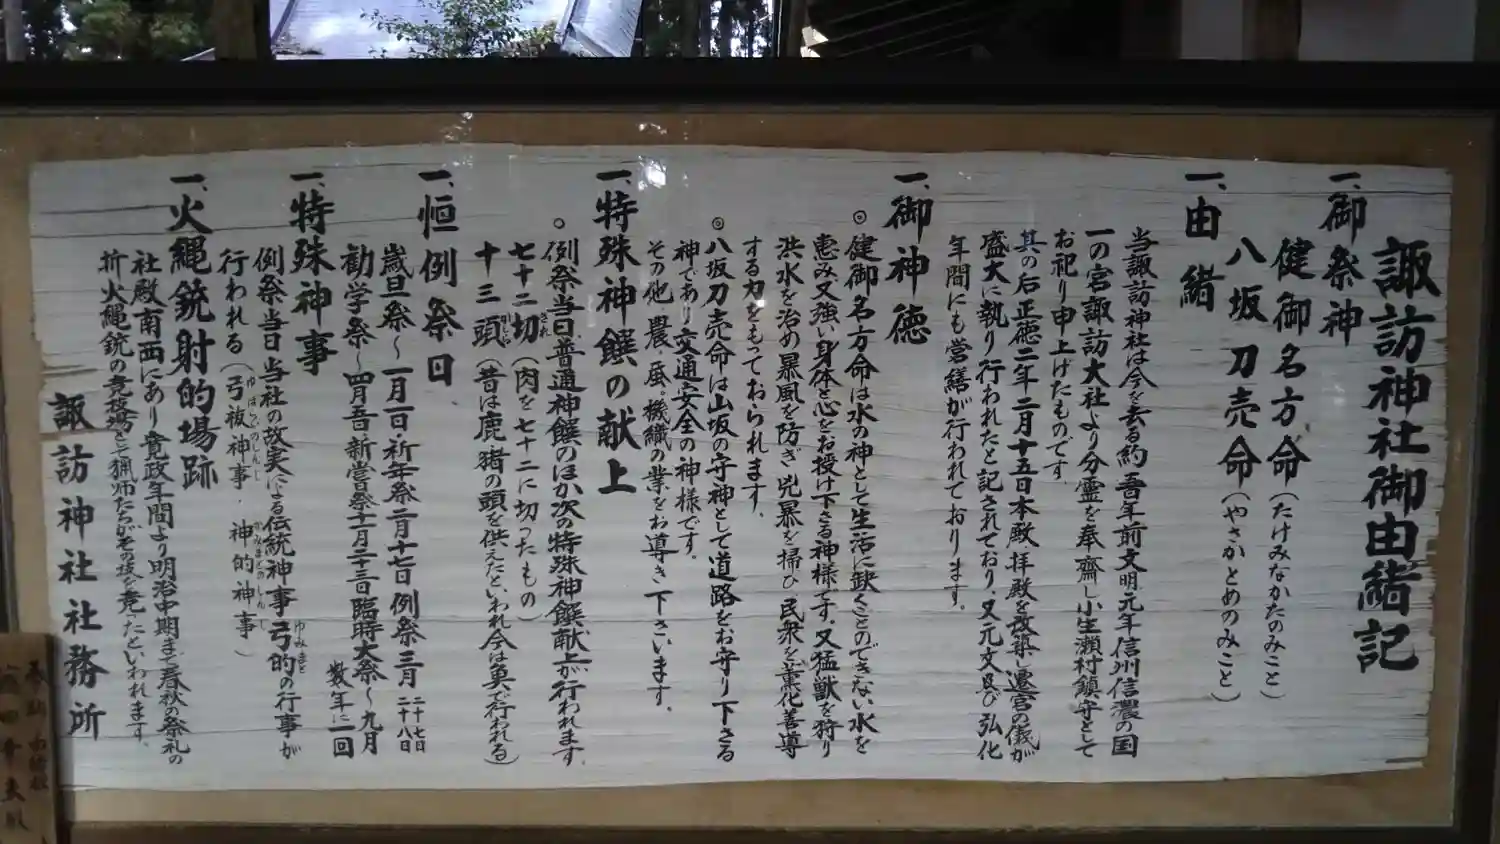 諏訪神社御由緒記
一、御祭神
健御名方命（たけみなかたのみこと）
八坂刀売命（やさかとめのみこと）
一、由緒
当諏訪神社は今を去る約五百年前文明元年信州信濃の国
一の宮諏訪大社より分霊を奉齋し小生瀬村鎮守として
お祀り申上げたものです。
其の后正徳二年二月十五日本殿、拝殿を改築し遷宮の儀が
盛大に執り行われたと記されており、又元文及び弘化
年間にも営繕が行われております。
一、御神徳
◎健御名方命は水の神として生活に欠くことのできない水を
恵み又強い身体と心をお授け下さる神様です。又猛獣を狩り
洪水を治め暴風を防ぎ兇暴を掃ひ民衆を薫化善導
する力をもっておられます。
◎八坂刀売命は山坂の守神として道路をお守り下さる
神であり交通安全の神様です。
その他農・蚕・機織の業をお導き下さいます。
一、特殊神饌の献上
◦例祭当日、普通神饌のほか次の特殊神饌献上が行われます。
七十二切（肉を七十二に切ったもの）
十三頭（昔は鹿、猪の頭を供えたといわれ今は魚で行われる）
一、恒例祭日
歳旦祭〜一月一日・祈年祭二月十七日例祭三月二十七日二十八日
勧学祭〜四月五日・新嘗祭十一月二十三日臨時大祭〜九月数年に一回
一、特殊神事
例祭当日当社の故実による伝統神事弓的の行事が
行われる（弓祓神事・神的神事）
一、火縄銃射的場跡
社殿南西にあり寛政年間より明治中期まで春秋の祭礼の
折火縄銃の競技場として猟師たちがその技を競ったといわれます。
諏訪神社社務所